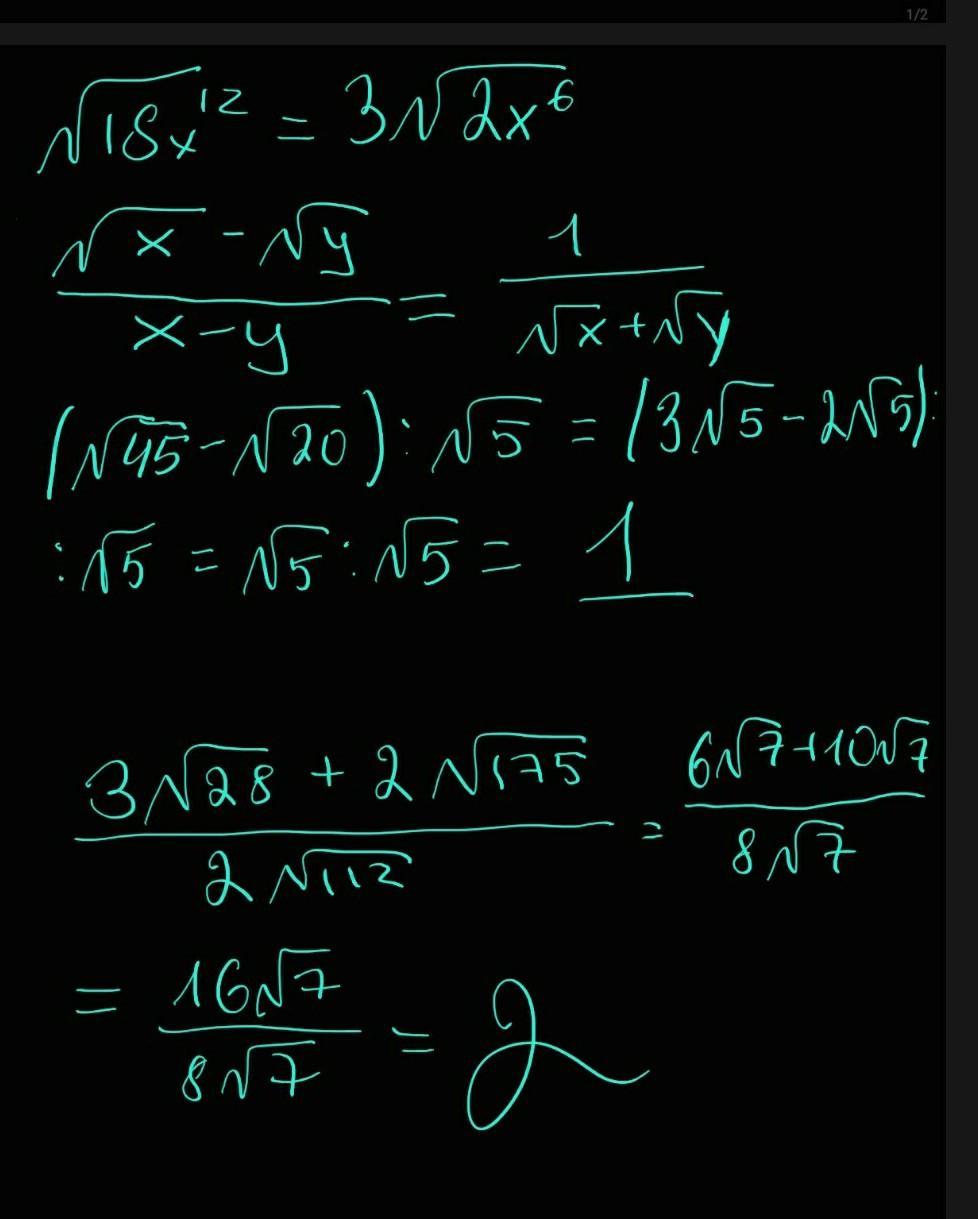 1/2
√18x¹² = 3√2x⁶
(√x - √y)/(x - y) = 1/(√x + √y)
(√45 - √20) : √5 = (3√5 - 2√5) :
: √5 = √5 : √5 = 1
(3√28 + 2√175)/(2√112) = (6√7 + 10√7)/(8√7)
= 16√7/8√7 = 2